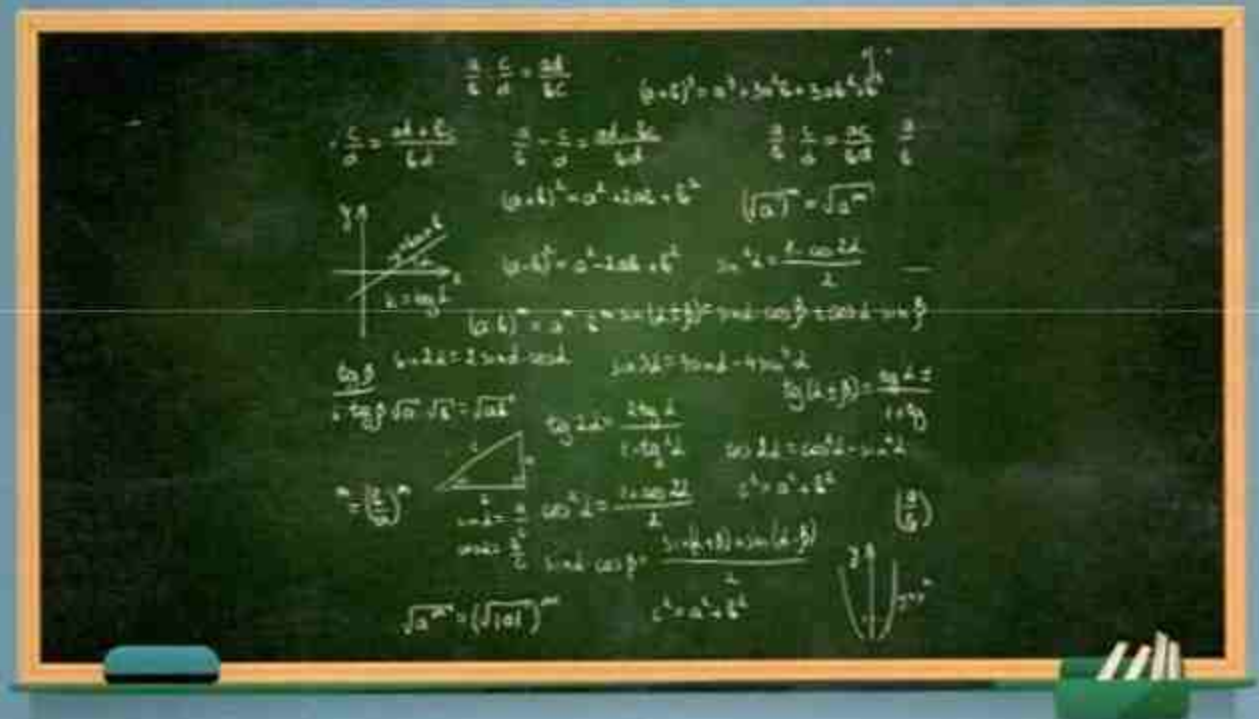 a/b : c/d = ad/bc
(a+b)³ = a³+3a²b+3ab²+b³
c/d = ad+bc/bd
a/b - c/d = ad-bc/bd
a/b · c/d = ac/bd
a/b
(a+b)² = a²+2ab+b²
(√a)ᵐ = √aᵐ
y
(a-b)² = a²-2ab+b²
sin²α = 1-cos2α/2
k = tgα
(a·b)ᵐ = aᵐ·bᵐ
sin(α±β) = sinα·cosβ±cosα·sinβ
sin2α = 2sinα·cosα
sin3α = 3sinα-4sin³α
tg β
tg β
√a·√b = √ab
tg(α±β) = tgα±
1+tg
tg2α = 2tgα/1-tg²α
cos2α = cos²α-sin²α
c
a
b
c² = a²+b²
cos²α = 1+cos2α/2
(a/b)
sinα = a/c
cosα = b/c
sinα·cosβ = sin(α+β)+sin(α-β)/2
y
c² = a²+b²